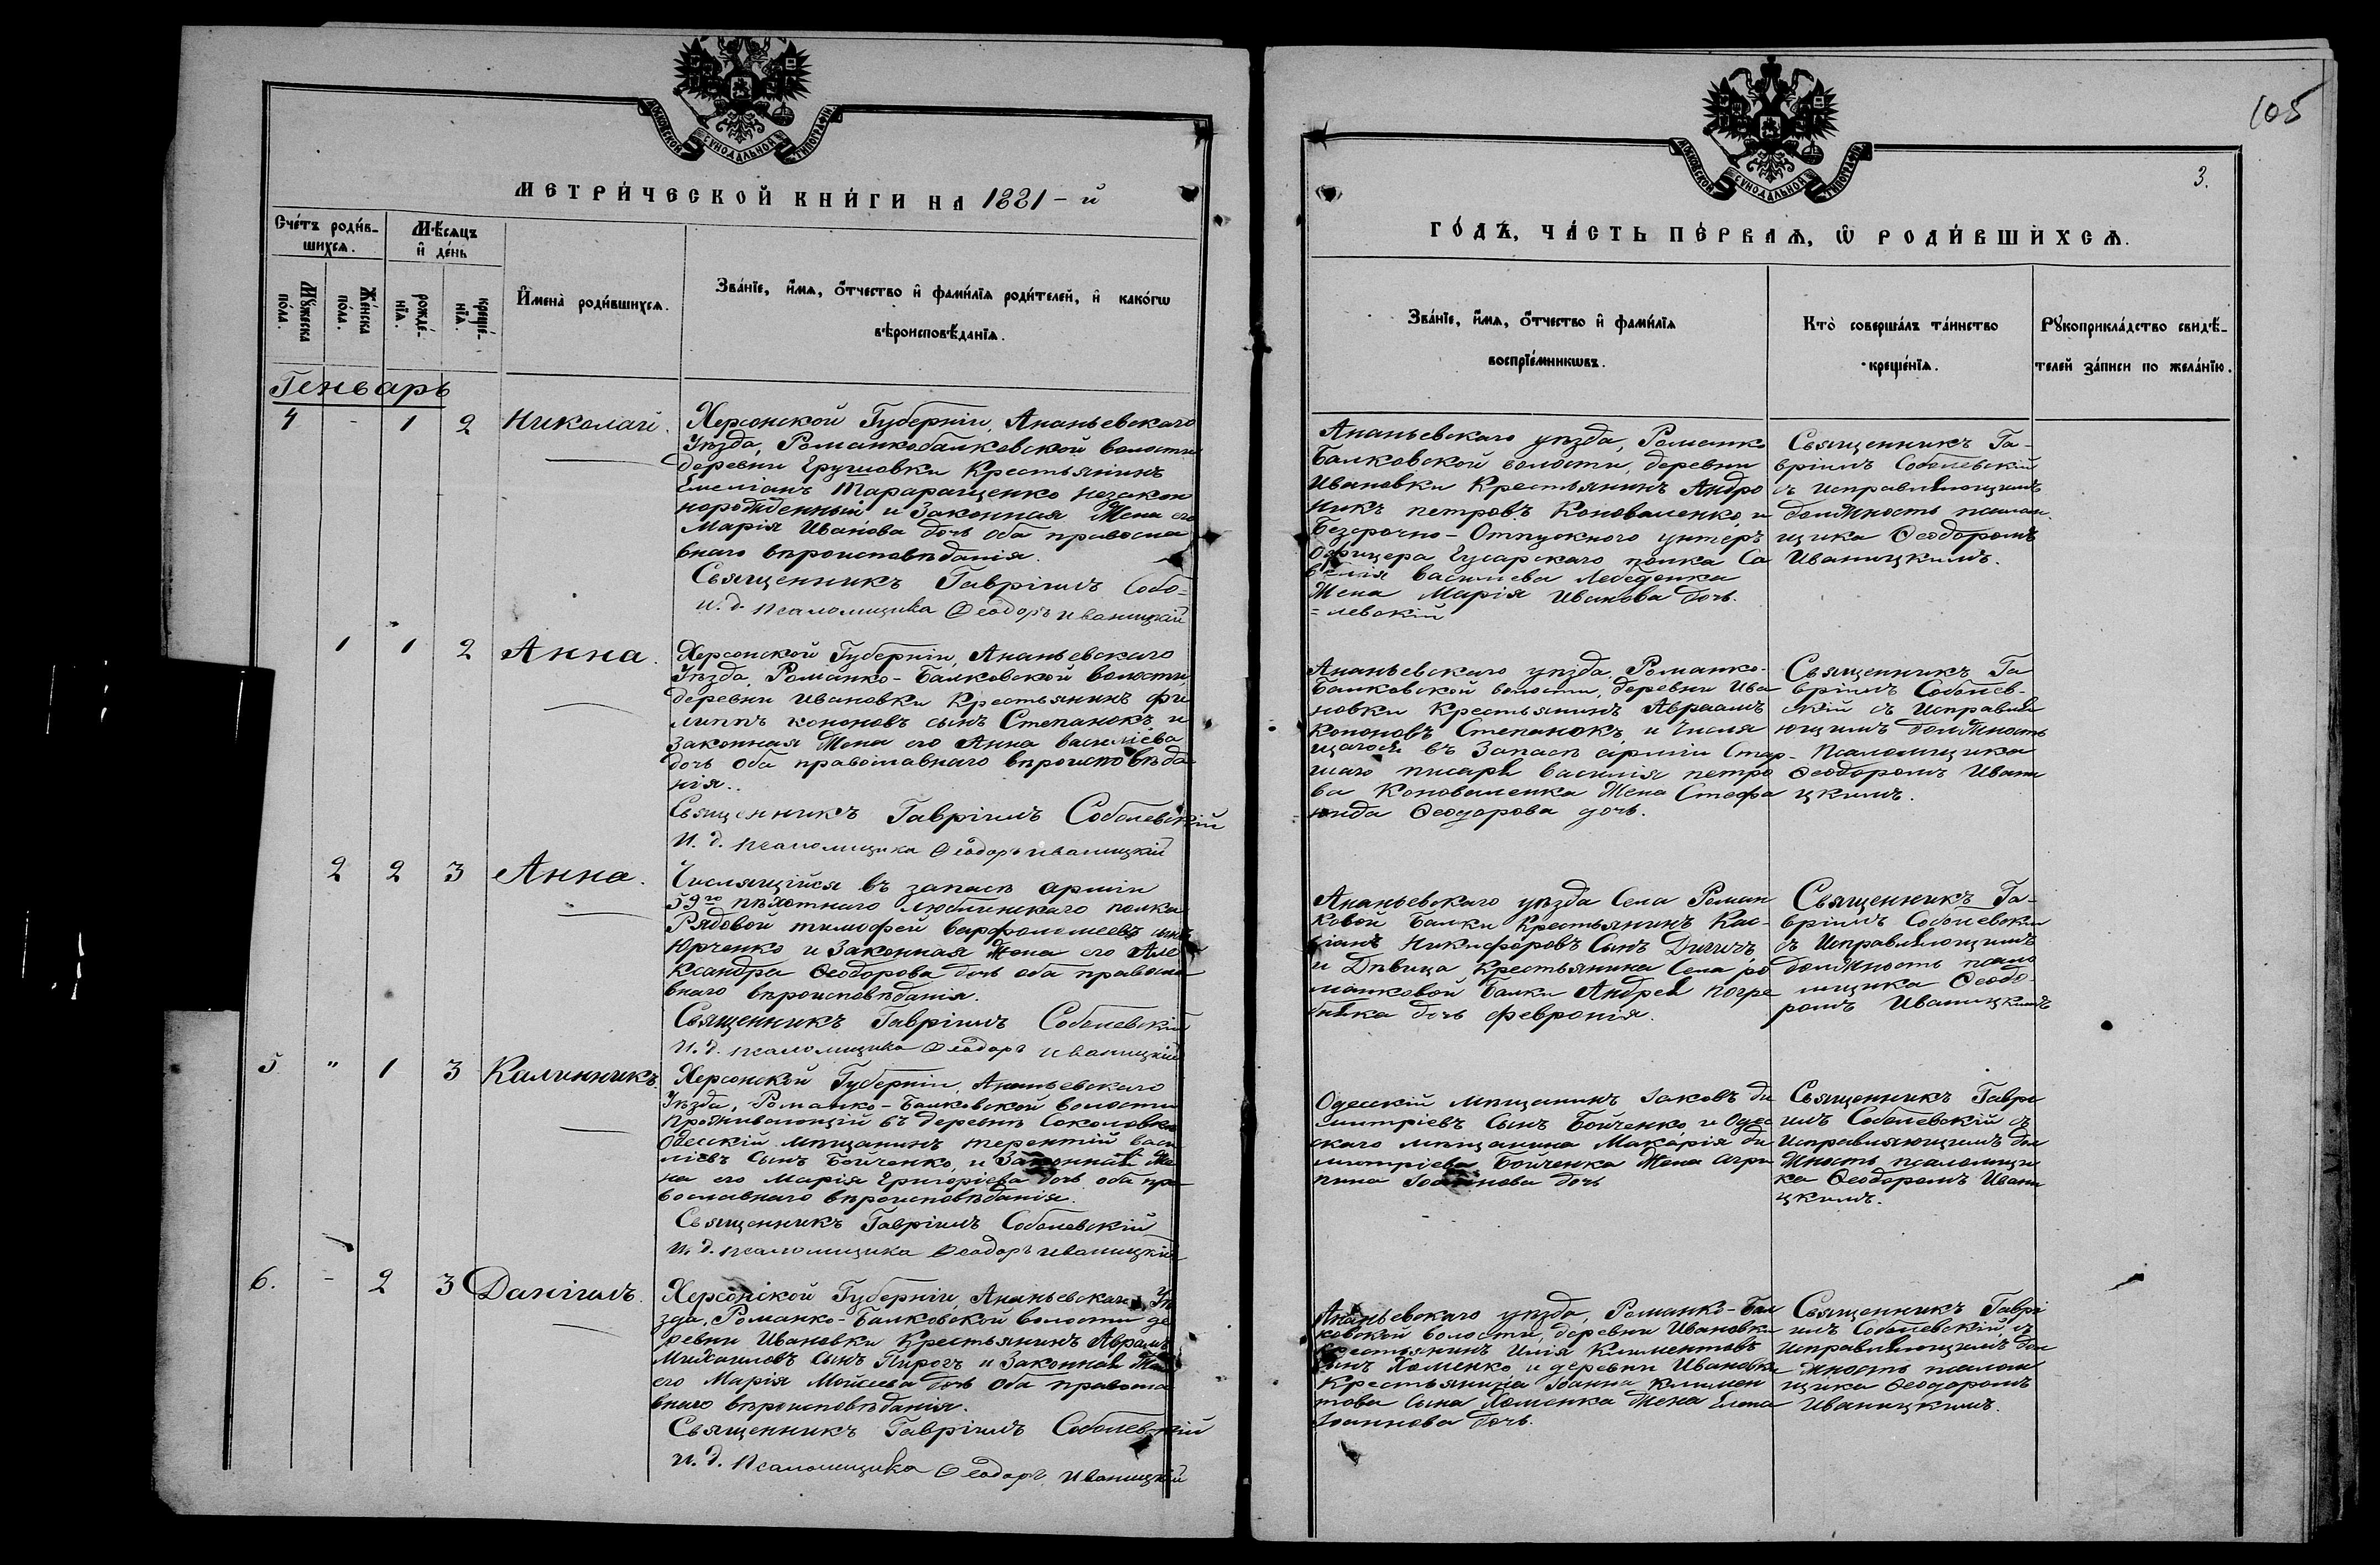 МОСКОВСКОЙ СѴНОДАЛЬНОЙ ТИПОГРАФІИ
МЕТРИ́ЧЕСКОЙ КНИ́ГИ НА 1881-й
Сче́тъ роди́в-
шихсѧ.
Мѣ́сѧцъ
и҆ де́нь
Мꙋ́жеска
по́ла.
Же́нска
по́ла.
рожде́-
нїѧ.
креще́-
нїѧ.
И҆мена̀ роди́вшихсѧ.
Зва́нїе, и҆́мѧ, ѻ҆́тчество и҆ фами́лїѧ роди́телей, и҆ како́гѡ
вѣроисповѣ́данїѧ.
Генварь
4 - 1 2 Николай.
Херсонской Губерніи, Ананьевскаго
Уѣзда, Романкобалковской волости
деревни Грушовки Крестьянинъ
Емеліанъ Тараращенко незакон
норожденный и Законная Жена его
Марія Иванова дочь оба правосла
внаго вѣроисповѣданія.
Священникъ Гавріилъ Собо=
И. д. псаломщика Ѳеодоръ Иваницкій
1 1 2 Анна.
Херсонской Губерніи, Ананьевскаго
Уѣзда, Романко-Балковской волости,
деревни Ивановки Крестьянинъ Фи
липпъ Кононовъ сынъ Степанокъ и
Законная Жена его Анна Василіева
дочь Оба православнаго вѣроисповѣда
нія..
Священникъ Гавріилъ Соболевскій
И. д. псаломщика Ѳеодоръ Иваницкій
2 2 3 Анна.
Числящійся въ запасѣ арміи
59го пѣхотнаго Люблинскаго полка
Рядовой Тимофей Варфоломеевъ сынъ
Юрченко и Законная Жена его Але
ксандра Ѳеодорова дочь оба правосла
внаго вѣроисповѣданія.
Священникъ Гавріилъ Соболевскій
И. д. псаломщика Ѳеодоръ Иваницкій
5 " 1 3 Калинникъ.
Херсонской Губерніи, Ананьевскаго
Уѣзда, Романко-Балковской волости
Проживающій въ деревнѣ Соколовкѣ
Одесскій мѣщанинъ Терентій Васи
ліевъ Сынъ Бойченко, и Законная Же
на его Марія Григоріева дочь оба пра
вославнаго вѣроисповѣданія.
Священникъ Гавріилъ Соболевскій
И. д. псаломщика Ѳеодоръ Иваницкій
6. - 2 3 Даніилъ.
Херсонской Губерніи, Ананьевскаго Уѣ
зда, Романко-Балковской волости де
ревни Ивановки Крестьянинъ Аврамъ
Михаиловъ Сынъ Пирогъ и Законная Жена
его Марія Мойсеева дочь Оба правосла
внаго вѣроисповѣданія.
Священникъ Гавріилъ Соболевскій
И. д. Псаломщика Ѳеодоръ Иваницкій
105
3.
МОСКОВСКОЙ СѴНОДАЛЬНОЙ ТИПОГРАФІИ
ГО́ДЪ, ЧА́СТЬ ПЕ́РВАѦ, Ѡ҆ РОДИ́ВШИХСѦ.
Зва́нїе, и҆́мѧ, ѻ҆́тчество и҆ фами́лїѧ
воспрїе́мникѡвъ.
Кто̀ соверша́лъ та́инство
креще́нїѧ.
Рꙋкоприкла́дство свидѣ́-
телей за́писи по жела́нїю.
Ананьевскаго уѣзда, Романко
Балковской волости, деревни
Ивановки Крестьянинъ Андро
никъ Петровъ Коноваленко, и
Безсрочно-Отпускного унтеръ
Офицера Гусарскаго полка Са
велія Васильева Лебеденка
Жена Марія Иванова дочь.
=левскій
Священникъ Га-
вріилъ Соболевскій
съ исправляющимъ
должность псалом
щика Ѳеодоромъ
Иваницкимъ.
Ананьевскаго уѣзда, Романко-
Балковской волости, деревни Ива
новки Крестьянинъ Авраамъ
Кононовъ Степанокъ, и Числя
щагося въ Запасѣ арміи Стар
шаго писаря Василія Петро
ва Коноваленка Жена Стефа
нида Ѳеодорова дочь.
Священникъ Га
вріилъ Соболев-
скій съ Исправля
ющимъ должность
Псаломщика
Ѳеодоромъ Ивани
цкимъ.
Ананьевскаго уѣзда Села Роман
ковой Балки Крестьянинъ Кас-
сіанъ Никифоровъ Сынъ
и Дѣвица Крестьянина Села Ро
манковой Балки Андрея Погре
бняка дочь Февронія.
Священникъ Га-
вріилъ Соболевскій
съ Исправляющимъ
должность псало
мщика Ѳеодо-
ромъ Иваницкимъ
Одесскій мѣщанинъ Іаковъ Ди
митріевъ Сынъ Бойченко и Одес
скаго мѣщанина Макарія Ди
митріева Бойченка Жена Агри
пина Іоаннова дочь
Священникъ Гаврі
илъ Соболевскій съ
Исправляющимъ дол
жность псаломщи
ка Ѳеодоромъ Ивани
цкимъ.
Ананьевскаго уѣзда, Романко-Бал
ковской волости, деревни Ивановки
Крестьянинъ Илія Климентовъ
Сынъ Хоменко и деревни Ивановки
Крестьянина Іоанна Климен
това Сына Хоменка Жена Елена
Іоаннова дочь.
Священникъ Гаврі
илъ Соболевскій, съ
Исправляющимъ дол
жность псалом
щика Ѳеодоромъ
Иваницкимъ.